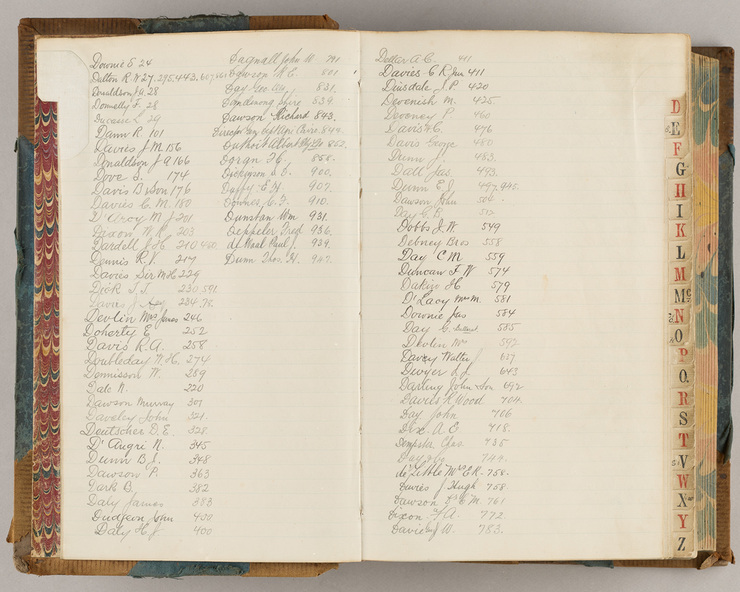 Downie S 24
Dalton R W 27, 295, 443, 607
Donaldson J G. 28
Donnelly F. 28
Ducasse L 29
Dann R 101
Davies J M 156
Donaldson J G 166
Dove S. 174
Davis B & Son 176
Davies C. M. 180
D'Arcy M J 201
Daxon W. R. 203
Dardell J G 210
Dennis R. V 217
Davies Sir M H 229
Dick T. T 230, 591
Davies J 234
Devlin Mrs James 246
Doherty E 252
Davis R. A. 258
Doubleday W. H. 274
Dennisson W. 289
Dale N. 320
Dawson Murray 307
Daveley John 321
Deutscher D. E. 328
D'Augri N. 345
Dunn B J. 348
Dawson P. 363
Dark B 382
Daly James 383
Dudgeon John 400
Daly H J 400
Dagnall John W 791
Dawson R. E. 801
Day Geo 831.
Dandenong Shire 839.
Dawson Richard 843.
858.
Dickyson 900.
Duffy E. H. 907.
Downes, C. F. 910.
Dunstan Wm 931.
Deppeler Fred 936.
de Waal Paul J. 939.
Dunn Thos. H. 947.
Detter A. C. 411
Davies E R Jnr 411
Dinsdale J P 420
Devenish M. 425.
Drooney P 460
Davis H C. 476
Davis George 480
Dunn J. 483.
Dall Jas. 493.
Dunn E J 497, 945.
Dawson John 506
Day C. B. 513
Dobbs J. W. 549
Debney Bros 558
Day C M. 559
Duncan F. W 574
Dakin H 579
D'Lacy Mrs M. 581
Downie Jas 584
Day G. 585
Devlin Mrs 592
Davey Walter J 637
Dwyer J. J 643
Darling John & Son 692
Davies R Wood 704.
Day John 706
Dix. A E 718.
Dempster Chas. 735
Day 744.
de Little Mrs E R. 758.
Davies J Hugh 758
Dawson M. 761
Dixon F A. 772.
Davies J W. 783.
D
E
F
G
H
I
K
L
M
Mc
N
O
P
Q
R
S
T
V
W
X
Y
Z